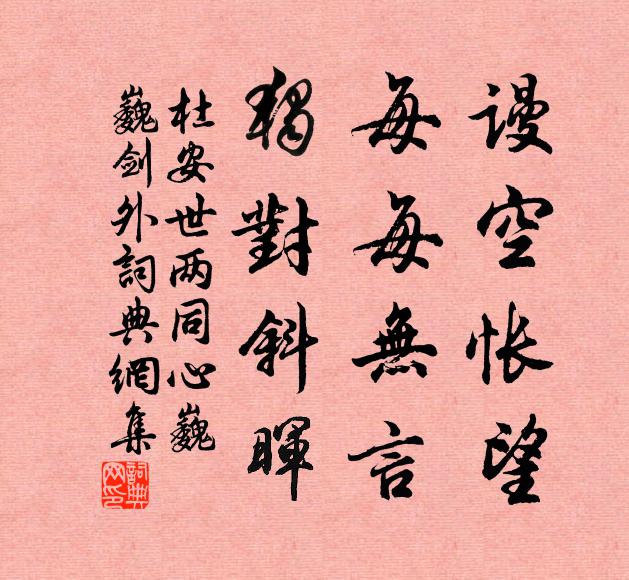 謾空悵望
每每無言
獨對斜暉
杜安世两同心巍
巍剑外詞典網集
詞典
网印